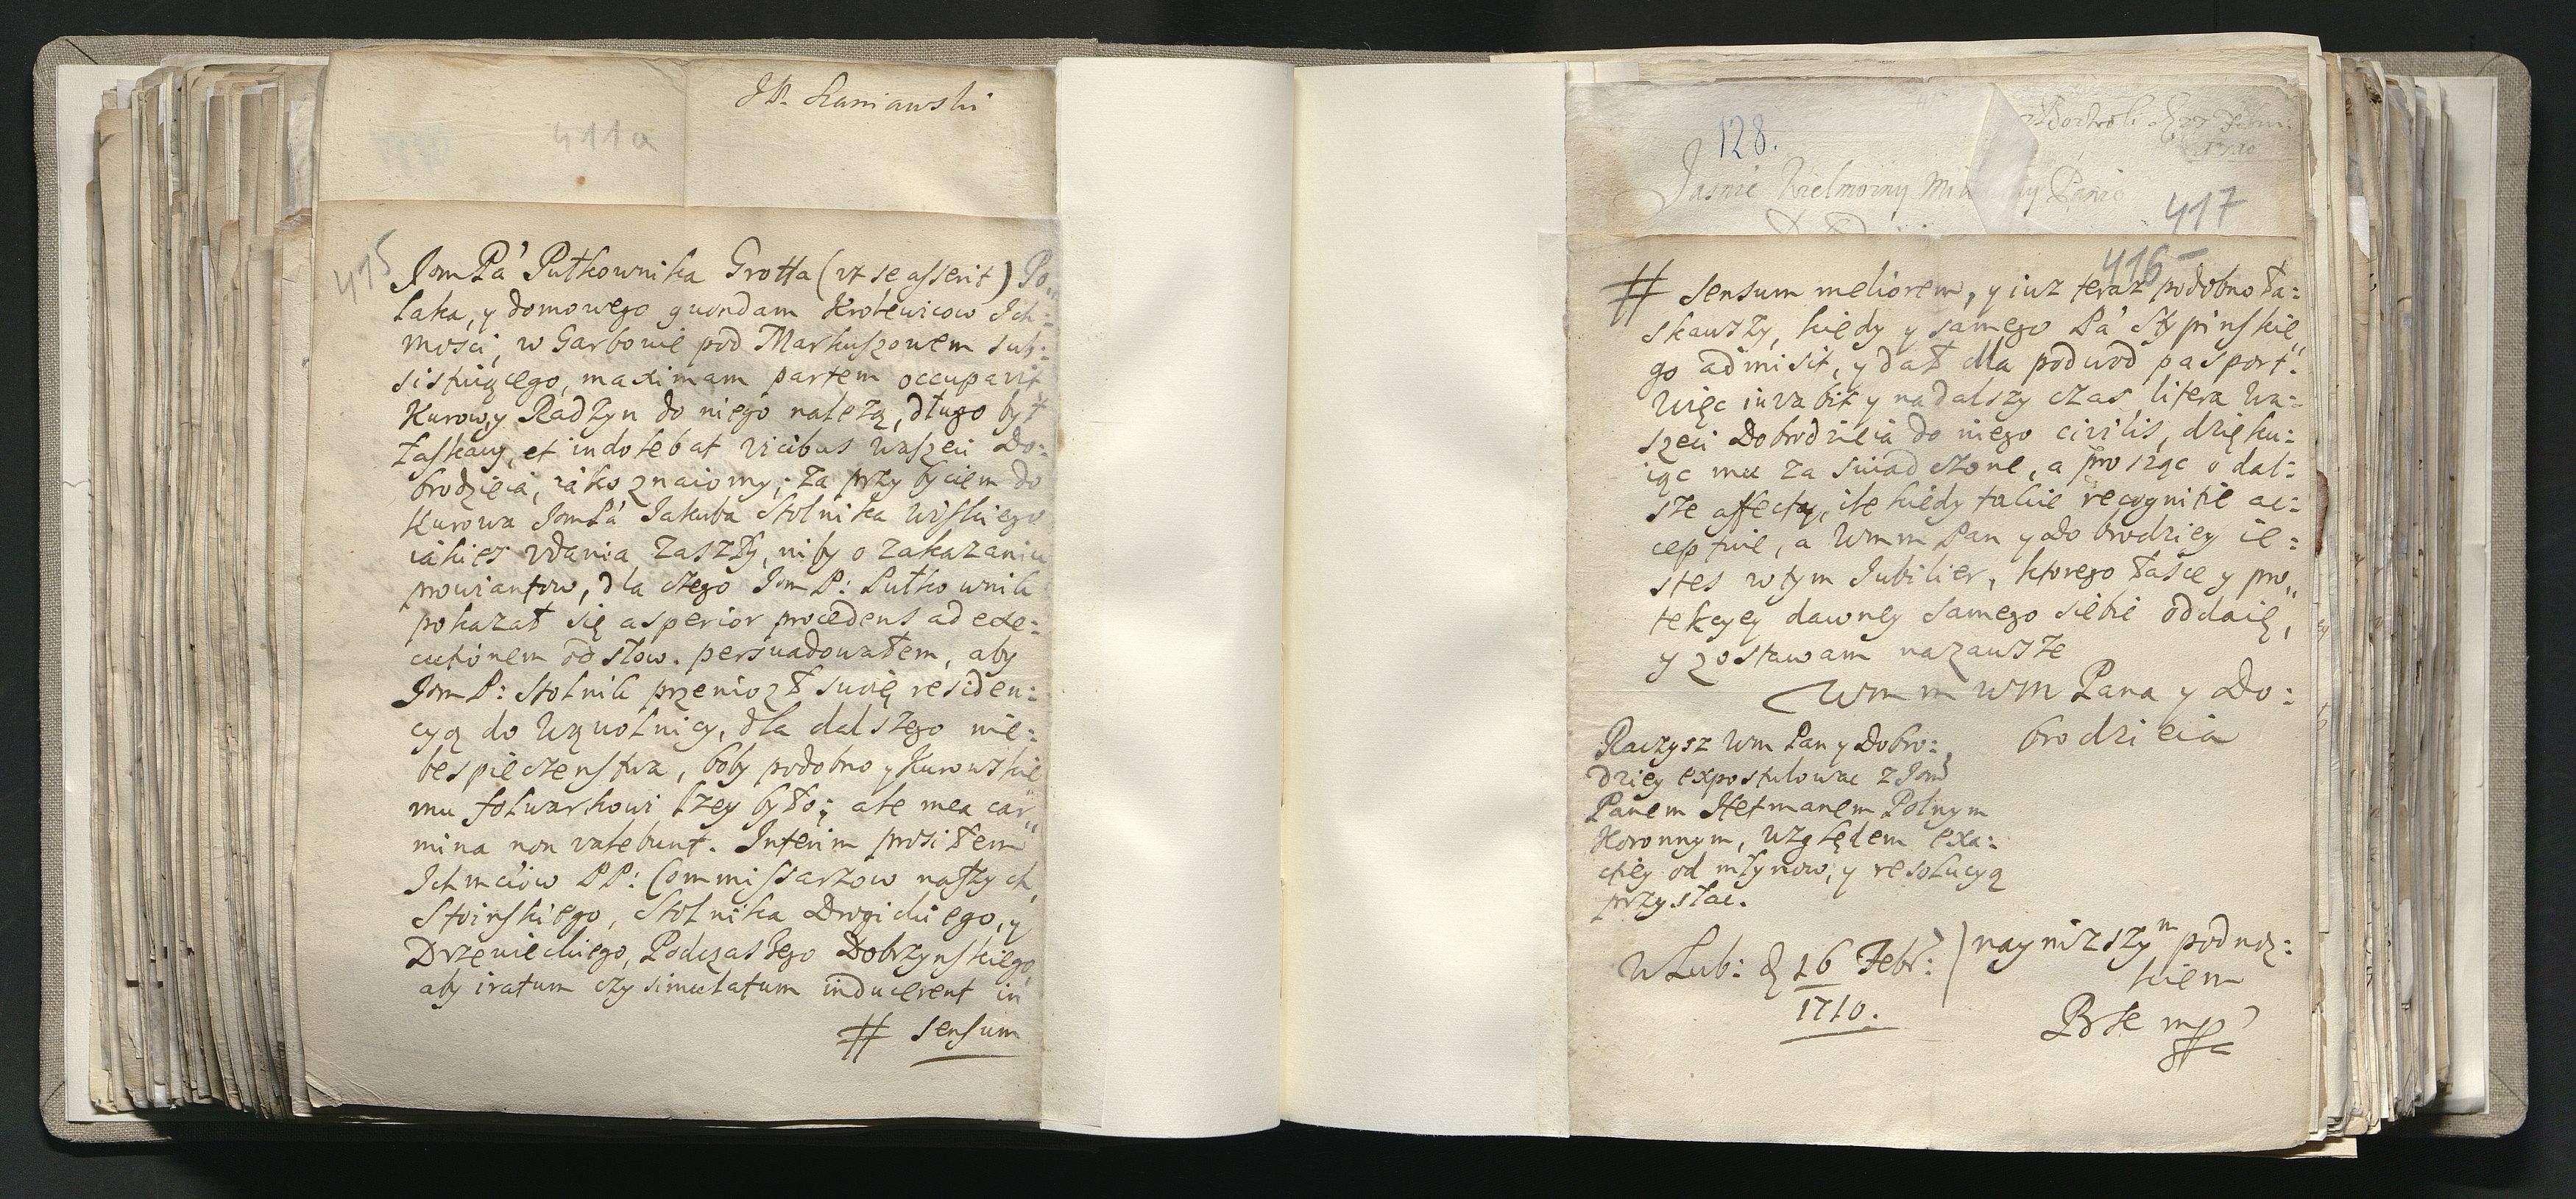 JP. Staniawski
411a
415
Jom Pa' Pułkownika Grotta (vt se asserit) Po,,
laka, y domowego quondam Krolewicow Ich:
mosci, w Garbowie pod Markuszowem sub:
sistuiącego, maximam partem occupavit
Kurow, y Radzyn do niego należą, długo był
łaskawy, et indolebat vicibus waszeci Do:
brodzieia, iako znaiomy; za przybyciem do
Kurowa JomPa' Jakuba Stolnika Wiskiego
iakies vdania zaszły, niby o zakazaniu
prowiantow, dla czego Jom P: Pułkownik
pokazał się asperior procedens ad exe:
cutionem od słow. persuadowałem, aby
Jom P: Stolnik przeniozł swoię residen:
cyą do Wąwolnicy, dla dalszego nie:
bespieczenstwa, boby podobno y Kurowskie
mu folwarkowi lzey było; ale mea car,,
mina non valebunt. Interim prosiłem
Ichmciow PP: Commissarzow naszych,
Stoinskiego, Stolnika Drogickiego, y
Drzewieckiego, Podczaszego Dobrzynskiego,
aby iratum czy simulatum inducerent in
# sensum
128.
1710
Jasnie Wielmozny Panie
417
416
# sensum meliorem, y iuz teraz podobno ła:
skawszy, kiedy y samego Pa' Stypinskie,,
go admisit, y dał dla podwod pasport.
Więc iuvabit y nadalszy czas litera wa:
szeci Dobrodzieia do niego civilis, dzięku:
iąc mu za swiadczone, a prosząc o dal:
sze affecty, ile kiedy takie recognitie ac:
ceptuie, a Wmm Pan y Dobrodziey ie:
stes w tym Jubilier, ktorego łasce y pro,,
tekcyey dawney samego siebie oddaię,
y zostawam nazawsze
Wm m WM Pana y Do:
brodzieia
Raczysz Wm Pan y Dobro:
dziey expostulowac z Jom
Panem Hetmanem Polnym
Koronnym, względem exa:
ctiey od młynow, y resolucyą
przysłac.
w Lub: d 16 Febr:
1710.
nayniższym podnoz:
kiem
mpp